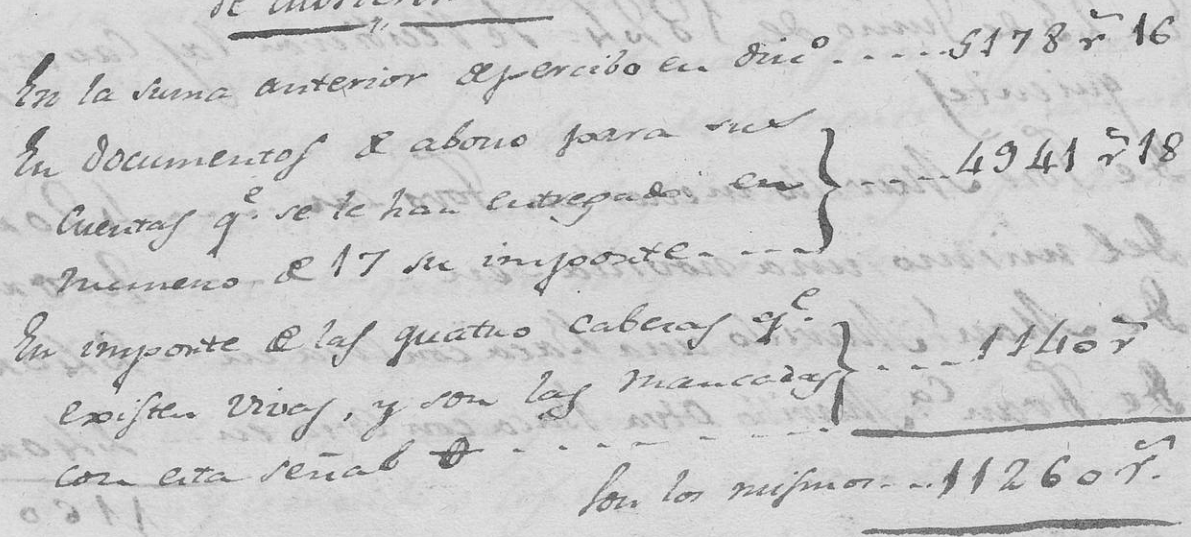 En la suma anterior de percibo en din.º ..... 5178 r.ˢ 16
En documentos de abono para sus
Cuentas q.ᵉ se le han entregado en
numero de 17 su importe .... 4941 r.ˢ 18
En importe de las quatro caberas q.ᵉ
existen vivas, y son las mancadas
con esta señal ......... 1140 r.ˢ
son los mismos ... 11260 r.ˢ